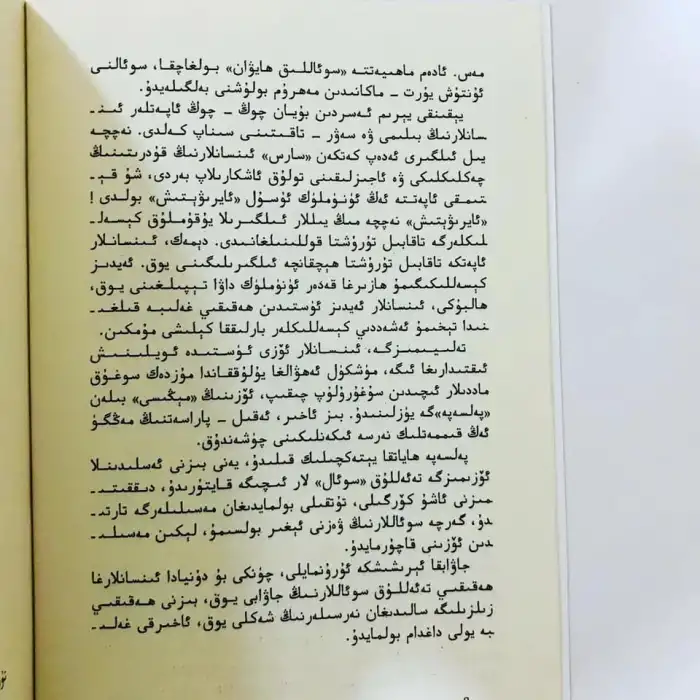 مەس. ئادەم ماھىيەتتە «سوئاللىق ھايۋان» بولغاچقا، سوئالنى
ئۇنتۇش يۇرت – ماكانىدىن مەھرۇم بولۇشنى بەلگىلەيدۇ.
يېقىنقى يېرىم ئەسىردىن بۇيان چوڭ – چوڭ ئاپەتلەر ئىن-
سانلارنىڭ بىلىمى ۋە سەۋر – تاقىتىنى سىناپ كەلدى. نەچچە
يىل ئىلگىرى ئەدەپ كەتكەن «سارس» ئىنسانلارنىڭ قۇدرىتىنىڭ
چەكلىكلىكى ۋە ئاجىزلىقىنى تولۇق ئاشكارىلاپ بەردى، شۇ قې-
تىمقى ئاپەتتە ئەڭ ئۈنۈملۈك ئۇسۇل «ئايرىۋېتىش» بولدى!
«ئايرىۋېتىش» نەچچە مىڭ يىللار ئىلگىرىلا يۇقۇملۇق كېسەل-
لىكلەرگە تاقابىل تۇرۇشتا قوللىنىلغانىدى. دېمەك، ئىنسانلار
ئاپەتكە تاقابىل تۇرۇشتا ھېچقانچە ئىلگىرىلىگىنى يوق. ئەيدىز
كېسەللىكىگىمۇ ھازىرغا قەدەر ئۈنۈملۈك داۋا تېپىلغىنى يوق،
ھالبۇكى، ئىنسانلار ئەيدىز ئۈستىدىن ھەقىقىي غەلىبە قىلغى-
نىدا تېخىمۇ ئەشەددىي كېسەللىكلەر بارلىققا كېلىشى مۇمكىن.
تەلىيىمىزگە، ئىنسانلار ئۆزى ئۈستىدە ئويلىنىش
ئىقتىدارىغا ئىگە، مۈشكۈل ئەھۋالغا يولۇققاندا مۇزدەك سوغۇق
ماددىلار ئىچىدىن سۇغۇرۇلۇپ چىقىپ، ئۆزىنىڭ «مېڭىسى» بىلەن
«پەلسەپە»گە يۈزلىنىدۇ. بىز ئاخىر، ئەقىل – پاراسەتنىڭ مەڭگۈ
ئەڭ قىممەتلىك نەرسە ئىكەنلىكىنى چۈشەندۇق.
پەلسەپە ھاياتقا يېتەكچىلىك قىلىدۇ، يەنى بىزنى ئەسلىدىنلا
ئۆزىمىزگە تەئەللۇق «سوئال» لار ئىچىگە قايتۇرىدۇ، دىققىتى-
مىزنى ئاشۇ كۆرگىلى، تۇتقىلى بولمايدىغان مەسىلىلەرگە تارتى-
دۇ، گەرچە سوئاللارنىڭ ۋەزنى ئېغىر بولسىمۇ، لېكىن مەسىلى-
دىن ئۆزىنى قاچۇرمايدۇ.
جاۋابقا ئېرىشىشكە ئۇرۇنمايلى، چۈنكى بۇ دۇنيادا ئىنسانلارغا
ھەقىقىي تەئەللۇق سوئاللارنىڭ جاۋابى يوق، بىزنى ھەقىقىي
زىلزىلىگە سالىدىغان نەرسىلەرنىڭ شەكلى يوق، ئاخىرقى غەلى-
بە يولى داغدام بولمايدۇ.